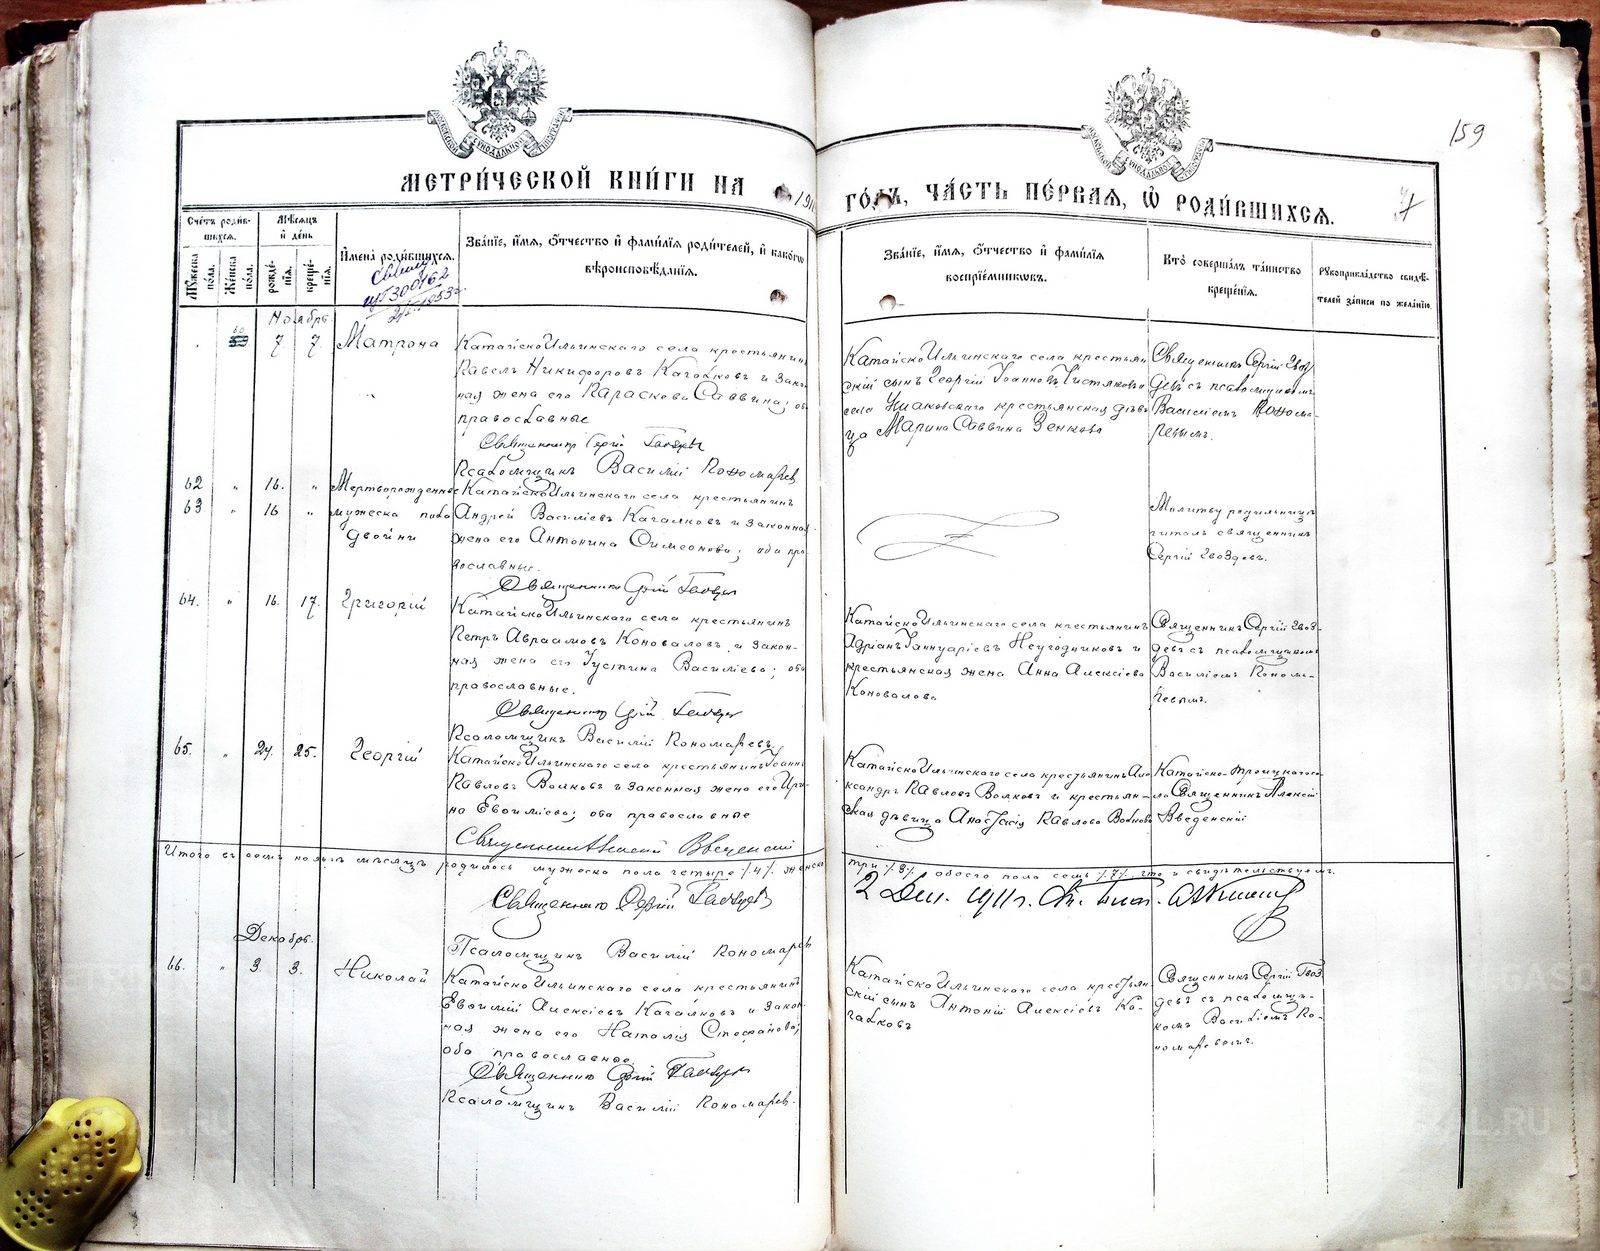 159
МЕТРИ́ЧЕСКОЙ КНИ́ГИ НА 1911
ГО́ДЪ, ЧА́СТЬ ПЕ́РВАЯ, Ѡ҆ РОДИ́ВШИХСЯ.
Сче́тъ роди́в-
шихся.
Мѣ́сяцъ
и҆ де́нь
Му́жеска
по́ла.
Же́нска
по́ла.
рожде́-
нія.
креще́-
нія.
И҆мена̀ роди́вшихся.
Зва́ніе, и҆́мя, ѻ҆́тчество и҆ фами́лія роди́телей, и҆ како́гѡ
вѣроисповѣ́данія.
Зва́ніе, и҆́мя, ѻ҆́тчество и҆ фами́лія
воспріе́мникѡвъ.
Кто̀ соверша́лъ та́инство
креще́нія.
Рꙋкоприкла́дство свидѣ́-
телей за́писи по жела́нію.
Ноябрь
60 7 7 Матрона
КатайскоИльинскаго села крестьянинъ
Павелъ Никифоровъ Кагалковъ и закон
ная жена его Параскева Саввина; оба
православные
Священникъ Сергій Гвоздевъ
Псаломщикъ Василій Пономаревъ
КатайскоИльинскаго села крестьян
скій сынъ Георгій Іоанновъ Чистяковъ
села крестьянская дѣви
ца Марина Саввина Зенкова
Священникъ Сергій Гвоз
девъ съ псаломщикомъ
Василіемъ Понома-
ревымъ.
62 " 16. " Мертворожденные
63 " 16 " мужеска пола
двойни
КатайскоИльинскаго села крестьянинъ
Андрей Василіевъ Кагалковъ и законная
жена его Антонина Симеонова; оба пра
вославные.
Священникъ Сергій Гвоздевъ
Молитву родильницѣ
читалъ священникъ
Сергій Гвоздевъ.
64. " 16. 17. Григорій
КатайскоИльинскаго села крестьянинъ
Петръ Авраамовъ Коноваловъ и закон-
ная жена его Іустина Василіева; оба
православные.
Священникъ Сергій Гвоздевъ
Псаломщикъ Василій Пономаревъ
КатайскоИльинскаго села крестьянинъ
Адріанъ Іаннуаріевъ Неугодниковъ и
крестьянская жена Анна Алексіева
Коновалова
Священникъ Сергій Гвоз-
девъ съ псаломщикомъ
Василіемъ Понома-
ревымъ.
65. " 24. 25. Георгій
КатайскоИльинскаго села крестьянинъ Іоаннъ
Павловъ Волковъ и законная жена его Ири
на Евѳиміева; оба православные
Священникъ Алексій Введенскій
КатайскоИльинскаго села крестьянинъ Але
ксандръ Павловъ Волковъ и крестьян-
ская дѣвица Анастасія Павлова Волкова
Катайско-Троицкаго се
ла Священникъ Алексій
Введенскій
Итого въ семъ ноябрѣ мѣсяцѣ родилось мужеска пола четыре /4/ женска
три /3/ обоего пола семь /7/ что и свидѣтельствуемъ.
Священникъ Сергій Гвоздевъ
2 Дек. 1911 г.
Псаломщикъ Василій Пономаревъ
Декабрь.
66. " 3. 3. Николай
КатайскоИльинскаго села крестьянинъ
Евѳимій Алексіевъ Кагалковъ и закон
ная жена его Наталія Стефанова;
оба православные
Священникъ Сергій Гвоздевъ
Псаломщикъ Василій Пономаревъ.
КатайскоИльинскаго села крестьян
скій сынъ Антоній Алексіевъ Ка-
галковъ
Священникъ Сергій Гвоз
девъ съ псаломщи-
комъ Василіемъ По-
номаревымъ.